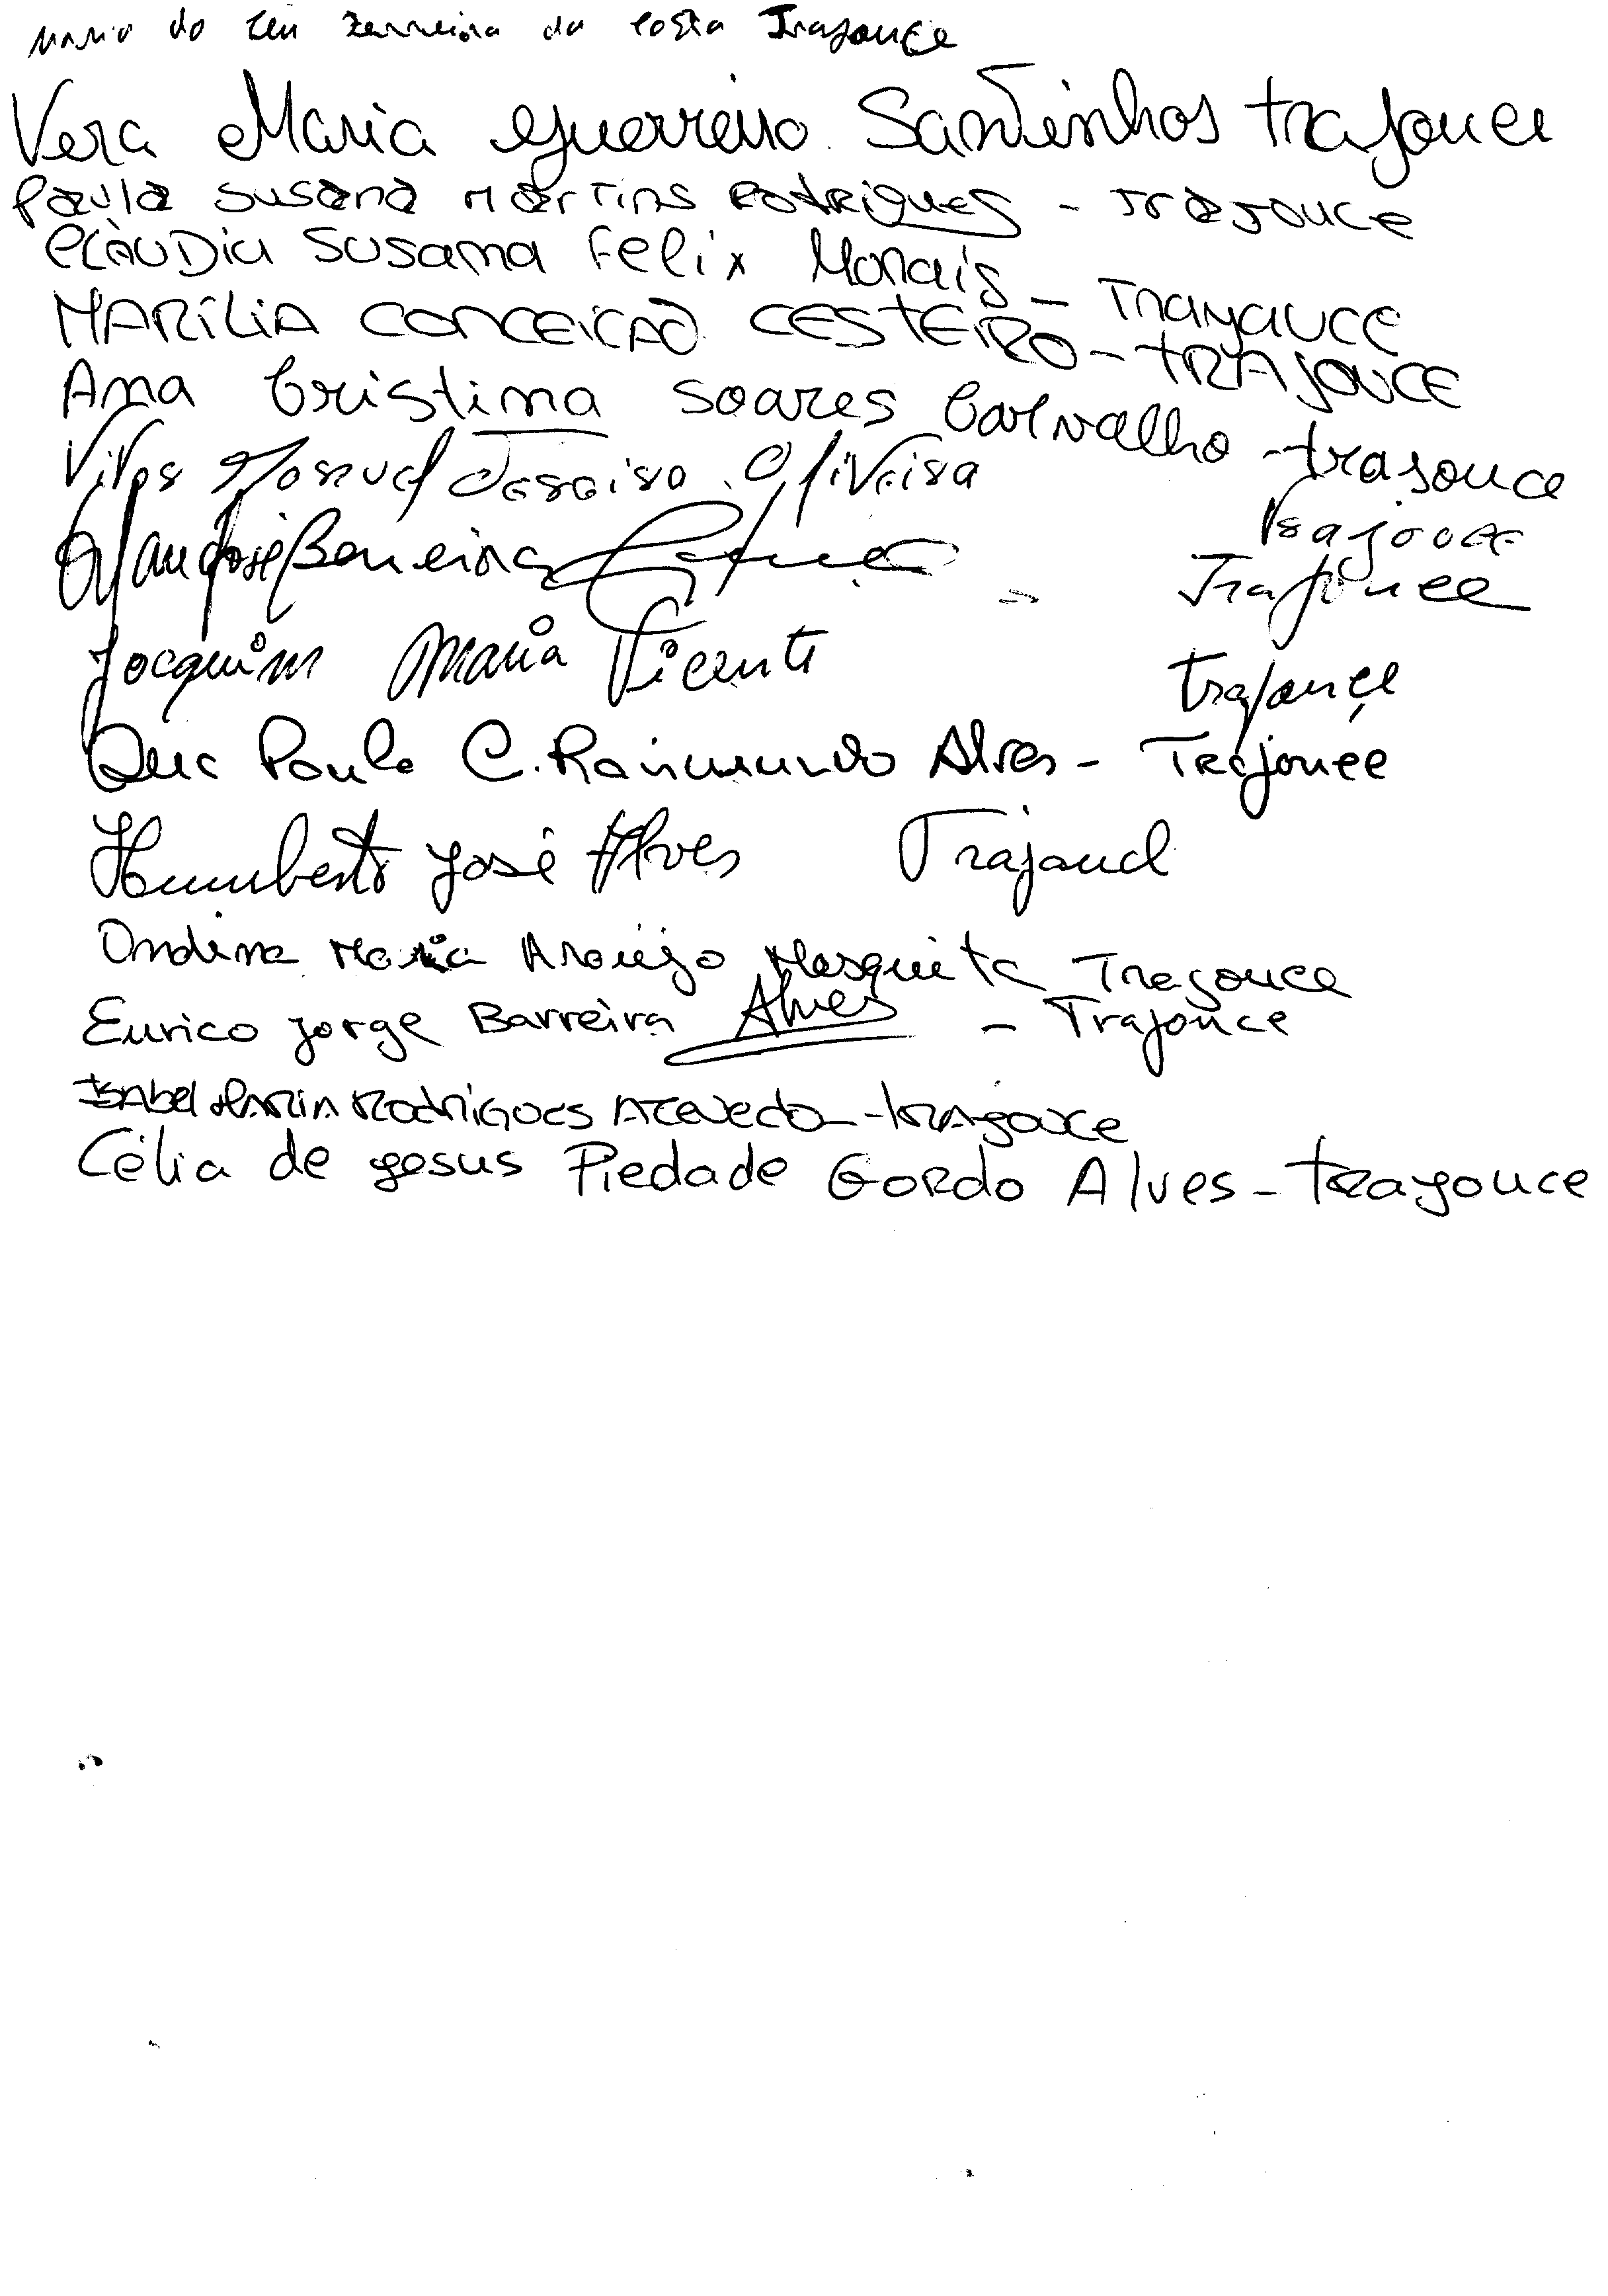 Maria do Céu Ferreira da Costa Trajouce
Vera Maria Guerreiro Santinhos trajouce
Paula Susana Martins Rodrigues - Trajouce
Cláudia Susana Felix Morais - Trayauce
MARÍLIA CONCEIÇÃO CESTEIRO - TRAJOUCE
Ana Cristina Soares Carvalho - trajouce
Vitor Manuel Oliveira Trajouce
José Barreira Trajouce
Joaquim Maria Vicente trajouce
Ana Paula C. Raimundo Alves - Trajouce
Humberto José Alves Trajouce
Ondina Maria Araújo Mesquita Trajouce
Eurico Jorge Barreira Alves - Trajouce
Isabel Maria Rodrigues Azevedo - trajouce
Célia de Jesus Piedade Gordo Alves - trayouce